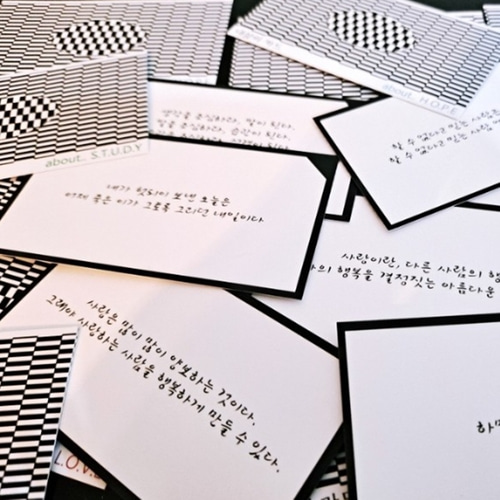 about.. H.O.P.E
about.. S.T.U.D.Y
생각을 조심하라. 말이 된다.
말을 조심하라. 습관이 된다.
할 수 있다고 믿는 사람은
할 수 없다고 믿는 사람
내가 헛되이 보낸 오늘은
어제 죽은 이가 그토록 그리던 내일이다
사랑이란, 다른 사람의
행복을 결정짓는 아름다운
사랑은 많이 많이 양보하는 것이다.
그래야 사랑하는 사람을 행복하게 만들 수 있다.
L.O.V.E